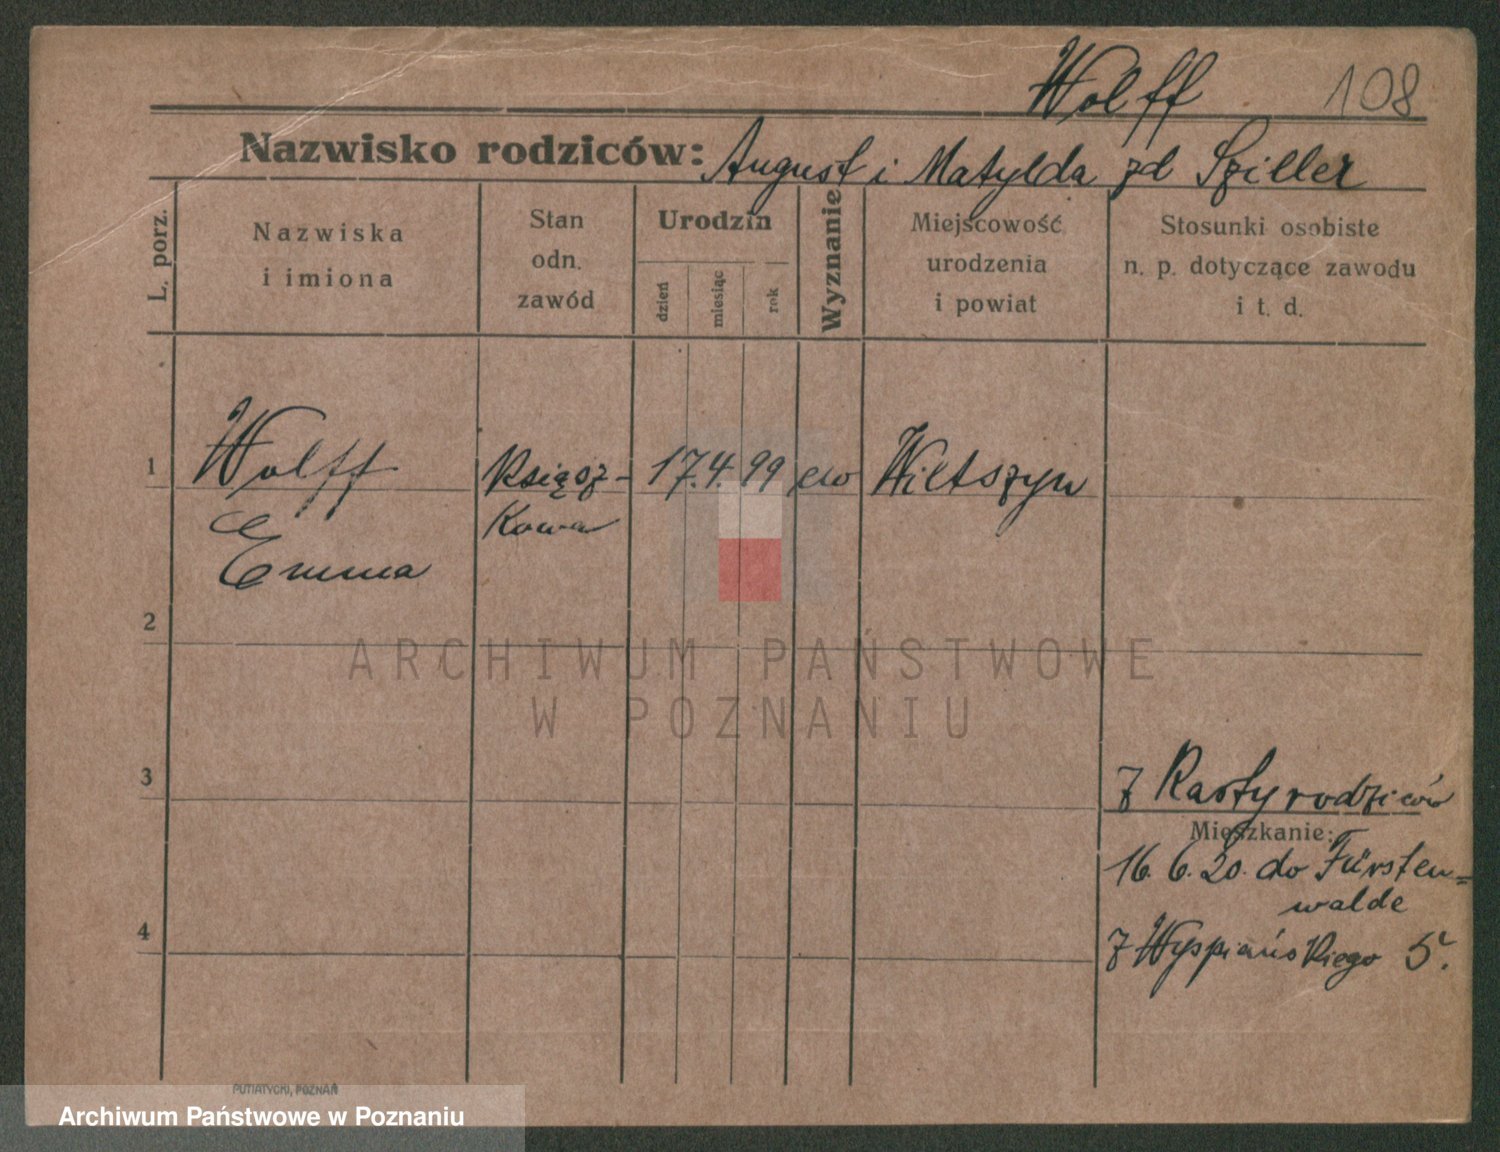 Wolff 108
Nazwisko rodziców: August i Matylda zd Sziller
L. porz.
Nazwiska
i imiona
Stan
odn.
zawód
Urodzin
dzień
miesiąc
rok
Wyznanie
Miejscowość
urodzenia
i powiat
Stosunki osobiste
n. p. dotyczące zawodu
i t. d.
1 Wolff Książ- 17. 4. 99 ew Wiltszyn
kowa
Emma
2
ARCHIWUM PAŃSTWOWE
W POZNANIU
3 z Karty rodziców
Mieszkanie:
16. 6. 20. do Fürsten=
walde
4 z Wyspiańskiego 5.
PUTIATYCKI, POZNAŃ
Archiwum Państwowe w Poznaniu